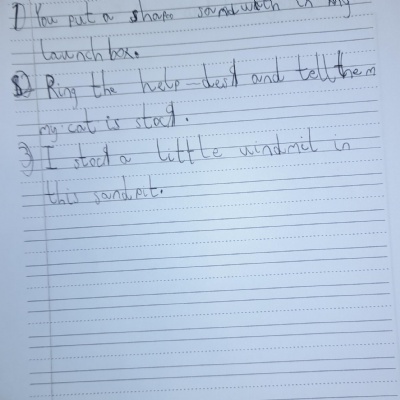 1) You put a sharp sandwitch in my
launch box.
2) Ring the help-desk and tell them
my cat is stock.
3) I stock a little windmil in
this sandpit.